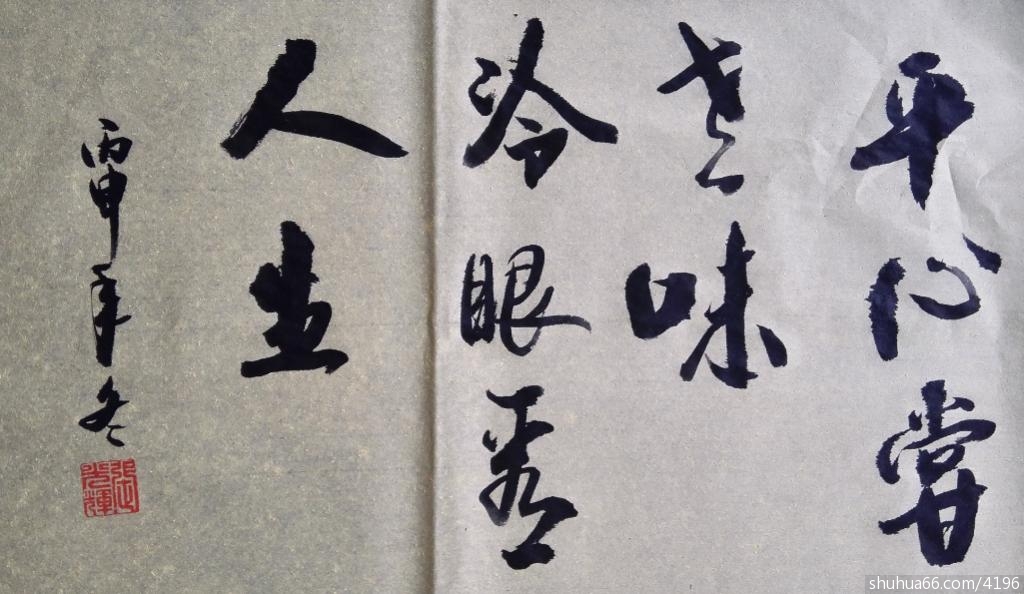 平心嘗
世味
冷眼看
人生
丙申年冬
張光輝
shuhua66.com/4196